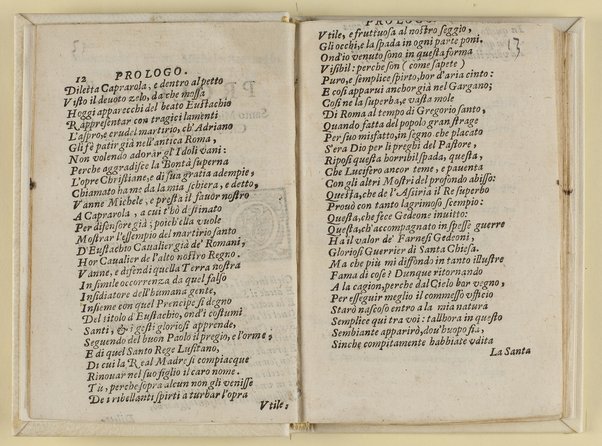 12 PROLOGO.
Diletta Caprarola, e dentro al petto
Visto il deuoto zelo, da che mossa
Hoggi apparecchi del beato Eustachio
Rappresentar con tragici lamenti
L'aspro, e crudel martirio, ch'Adriano
Gli fè patir già nell'antica Roma,
Non volendo adorar gl'Idoli vani:
Perche aggradisce la Bontà superna
L'opre Christiane, e di sua gratia adempie,
Chiamato ha me da la mia schiera, e detto,
Vanne Michele, e presta il fauor nostro
A Caprarola, a cui t'hò destinato
Per difensore già; poich'ella vuole
Mostrar l'essempio del martirio santo
D'Eustachio Caualier già de' Romani,
Hor Caualier de l'alto nostro Regno.
Vanne, e difendi quella Terra nostra
In simile occorrenza da quel falso
Insidiatore dell'humana gente,
Insieme con quel Prencipe sì degno
Del titolo d'Eustachio, ond'i costumi
Santi, & i gesti gloriosi apprende,
Seguendo del buon Paolo il pregio, e l'orme,
E di quel Santo Rege Lusitano,
Di cui la Real Madre si compiacque
Rinouar nel suo figlio il caro nome.
Tu, perche sopra alcun non gli venisse
De i ribellanti spirti a turbar l'opra
Vtile,
PROLOGO. 13
Vtile, e fruttuosa al nostro seggio,
Gli occhi, e la spada in ogni parte poni.
Ond'io venuto sono in questa forma
Visibil: perche son (come sapete)
Puro, e semplice spirto, hor d'aria cinto:
E così apparui anchor già nel Gargano;
Così ne la superba, e vasta mole
Di Roma al tempo di Gregorio santo,
Quando fatta del popolo gran strage
Per suo misfatto, in segno che placato
S'era Dio per li preghi del Pastore,
Riposi questa horribil spada, questa,
Che Lucifero ancor teme, e pauenta
Con gli altri Mostri del profondo abisso:
Questa, che de l'Assiria il Re superbo
Prouò con tanto lagrimoso scempio:
Questa, che fece Gedeone inuitto:
Questa, ch'accompagnato in spesse guerre
Ha il valor de' Farnesi Gedeoni,
Gloriosi Guerrier di Santa Chiesa.
Ma che più mi diffondo in tanto illustre
Fama di cose? Dunque ritornando
A la cagion, perche dal Cielo hor vegno,
Per esseguir meglio il commesso vfficio
Starò nascoso entro a la mia natura
Semplice qui tra voi: tallhora in questo
Sembiante apparirò, dou'huopo sia,
Sinche compitamente habbiate vdita
La Santa